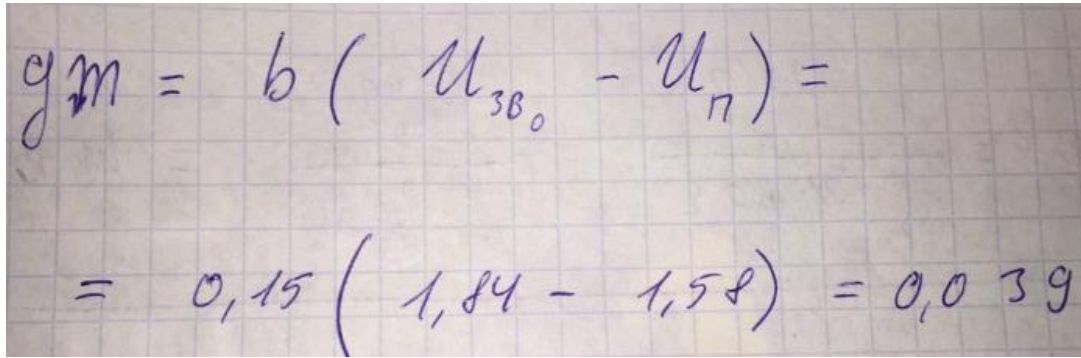 gm = b ( U_зв₀ - U_п ) =
= 0,15 ( 1,84 - 1,58 ) = 0,039